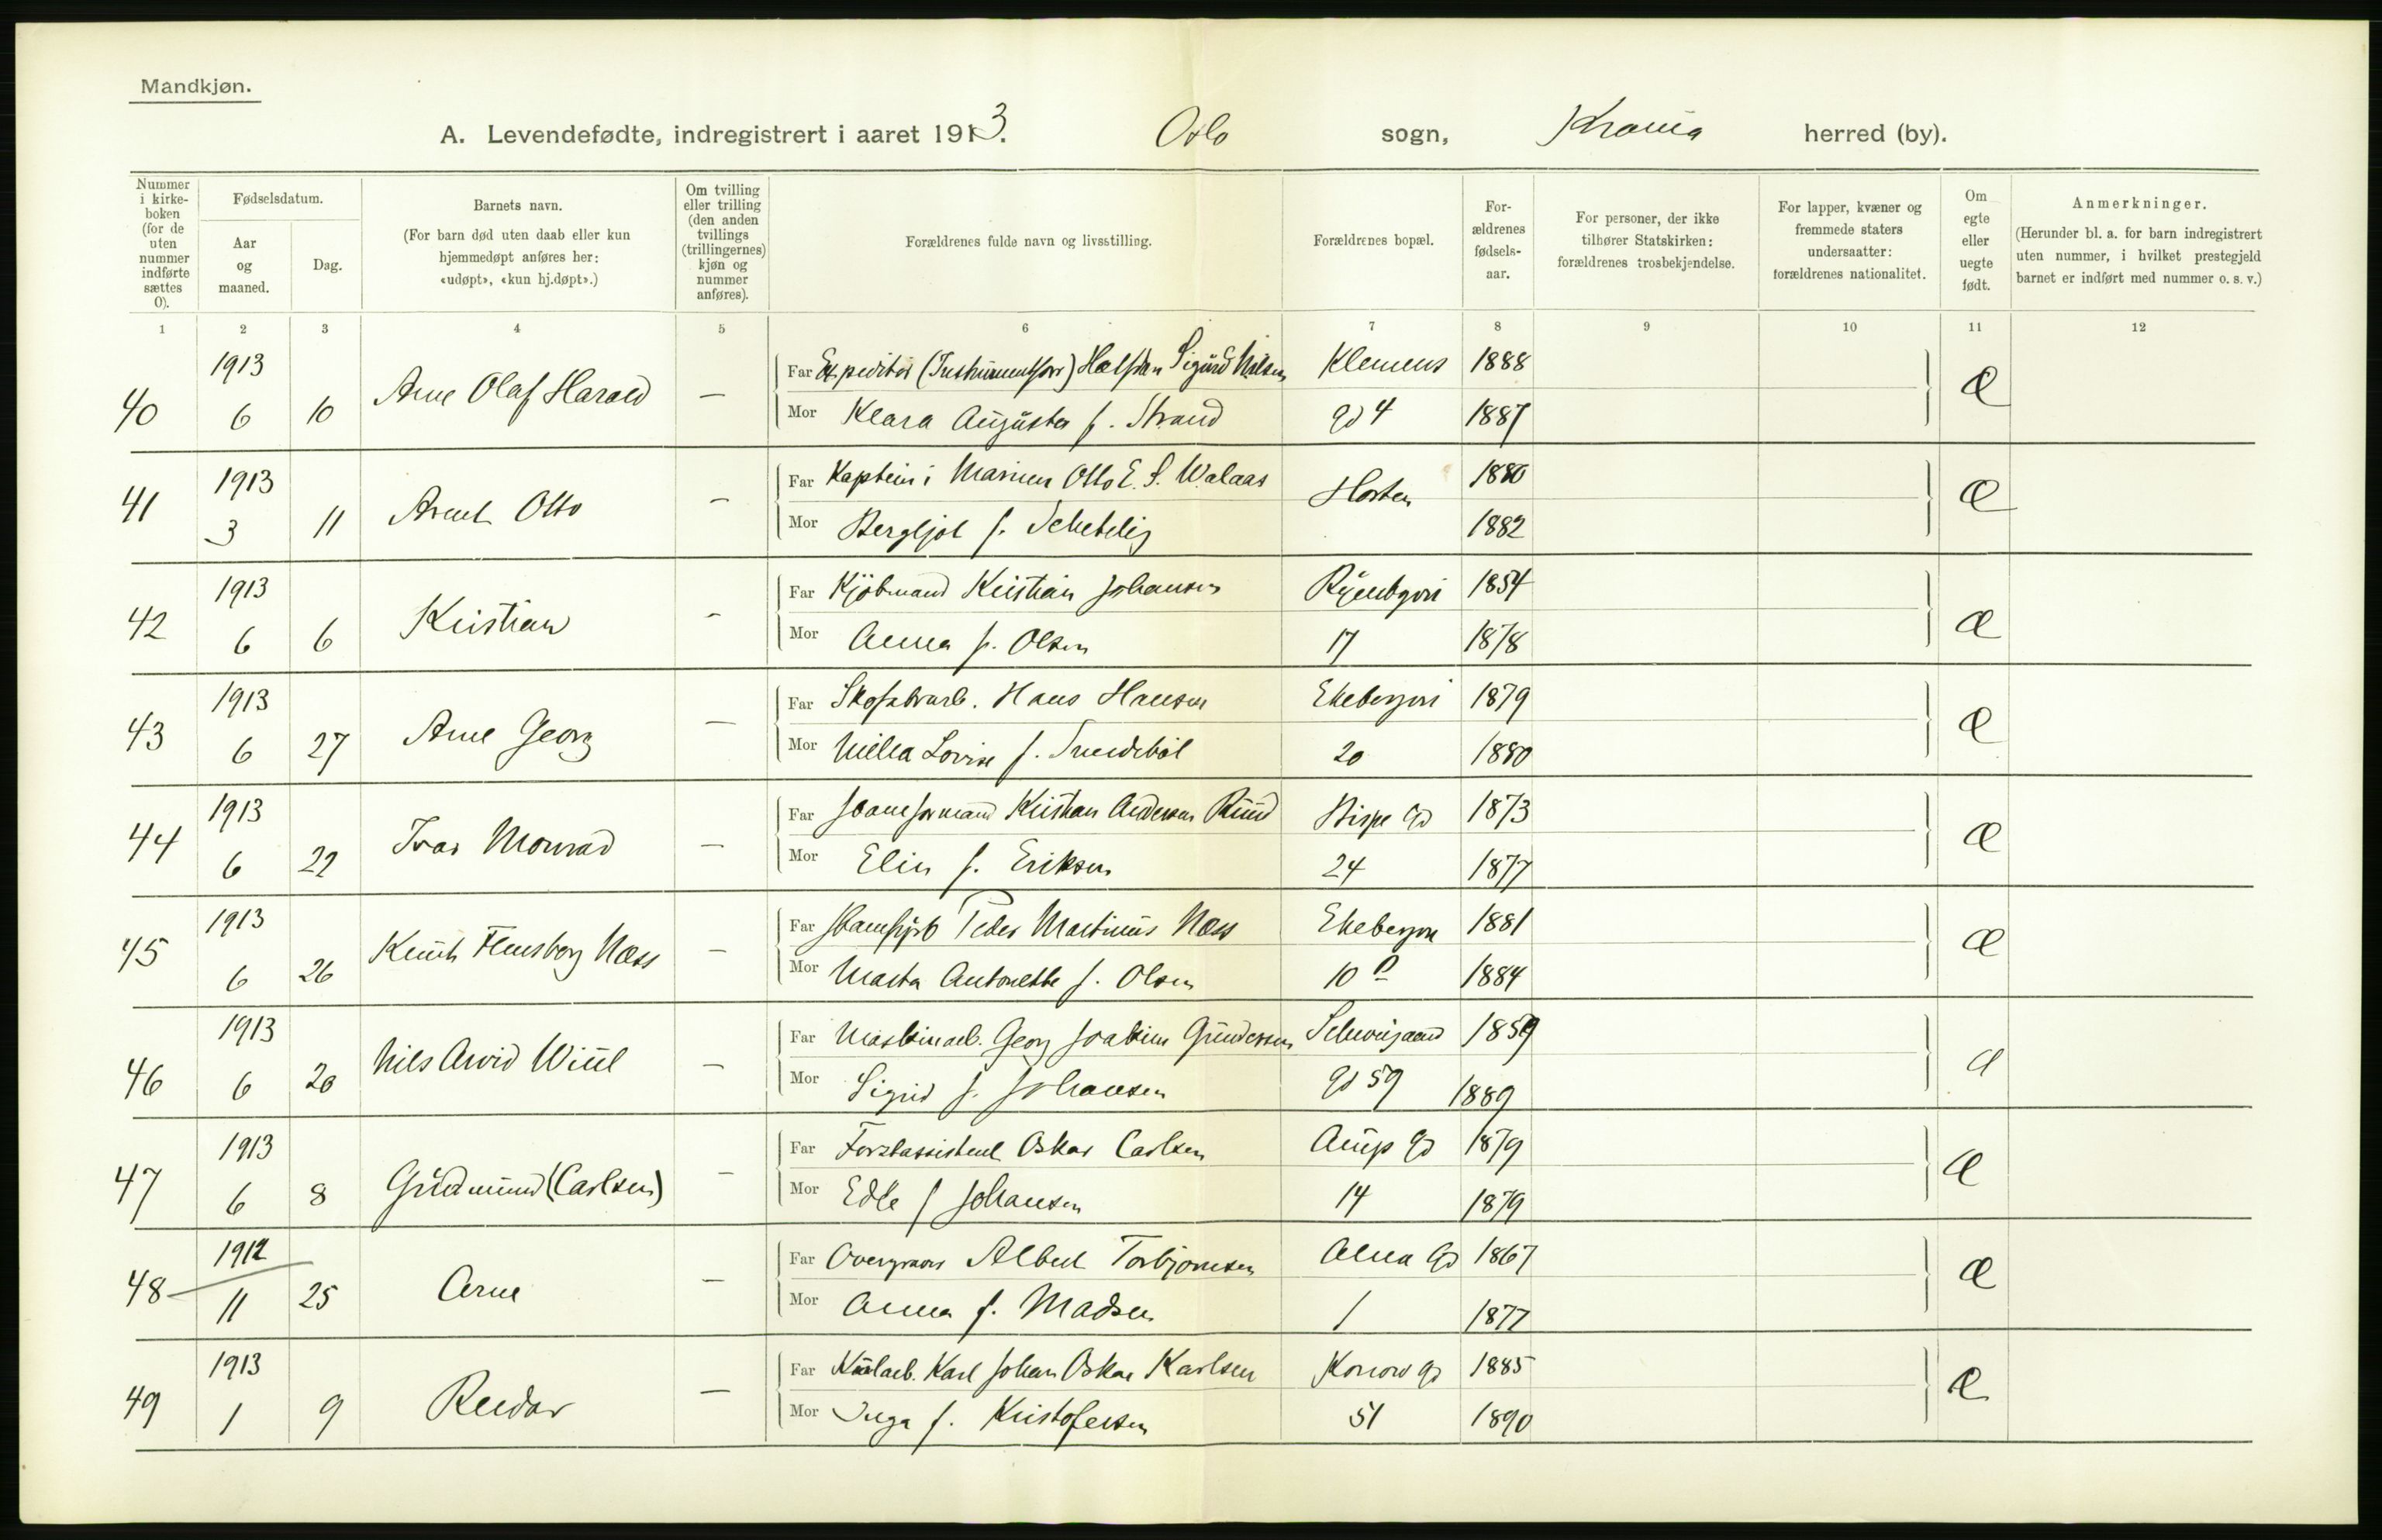 Mandkjøn.
A. Levendefødte, indregistrert i aaret 1913. Oslo sogn, Krania herred (by).
Nummer i kirke-boken (for de uten nummer indførte sættes 0).
Fødselsdatum.
Aar og maaned.
Dag.
Barnets navn.
(For barn død uten daab eller kun hjemmedøpt anføres her: «udøpt», «kun hj.døpt».)
Om tvilling eller trilling (den anden tvillings (trillingernes) kjøn og nummer anføres).
Forældrenes fulde navn og livsstilling.
Forældrenes bopæl.
For-ældrenes fødsels-aar.
For personer, der ikke tilhører Statskirken: forældrenes trosbekjendelse.
For lapper, kvæner og fremmede staters undersaatter: forældrenes nationalitet.
Om egte eller uegte født.
Anmerkninger.
(Herunder bl. a. for barn indregistrert uten nummer, i hvilket prestegjeld barnet er indført med nummer o. s. v.)
1 2 3 4 5 6 7 8 9 10 11 12
1913 Far Expeditør (Instrumentforr) Halfdan Sigurd Nilsen Klemens 1888
40 6 10 Arne Olaf Harald — Mor Klara Augusta f. Strand gd 4 1887 Æ
1913 Far Kaptein i Marinen Otto E. S. Walaas Horten 1880
41 3 11 Arent Otto — Mor Bergljot f. Schetelig 1882 Æ
1913 Far Kjöbmand Kristian Johansen 1854
42 6 6 Kristian — Mor Anna f. Olsen 17 1878 Æ
1913 Far Skofabrarb. Hans Hansen Ekebergvei 1879
43 6 27 Arne Georg — Mor Lovise f. 20 1880 Æ
1913 Far Kristian Andersen Ruud Bispe gd 1873
44 6 22 Ivar Monrad — Mor Elin f. Eriksen 24 1877 Æ
1913 Far Peder Martinius Næss Ekebergve 1881
45 6 26 Knut Flensborg Næss — Mor Marta Antonette f. Olsen 10 D 1884 Æ
1913 Far Maskinarb. Georg Joakim Gundersen Schweigaard 1859
46 6 20 Nils Arvid — Mor Sigrid f. Johansen gd 59 1889 Æ
1913 Far Forstassistent Oskar Carlsen Arup gd 1879
47 6 8 Gudmund (Carlsen) — Mor Edle f Johansen 14 1879 Æ
1912 Far Albert Torbjørnsen Alna gd 1867
48 11 25 Arne — Mor Anna f. Madsen 1 1877 Æ
1913 Far Kularb. Karl Johan Oskar Karlsen Konow gd 1885
49 1 9 Reidar — Mor Inga f. Kristofersen 51 1890 Æ